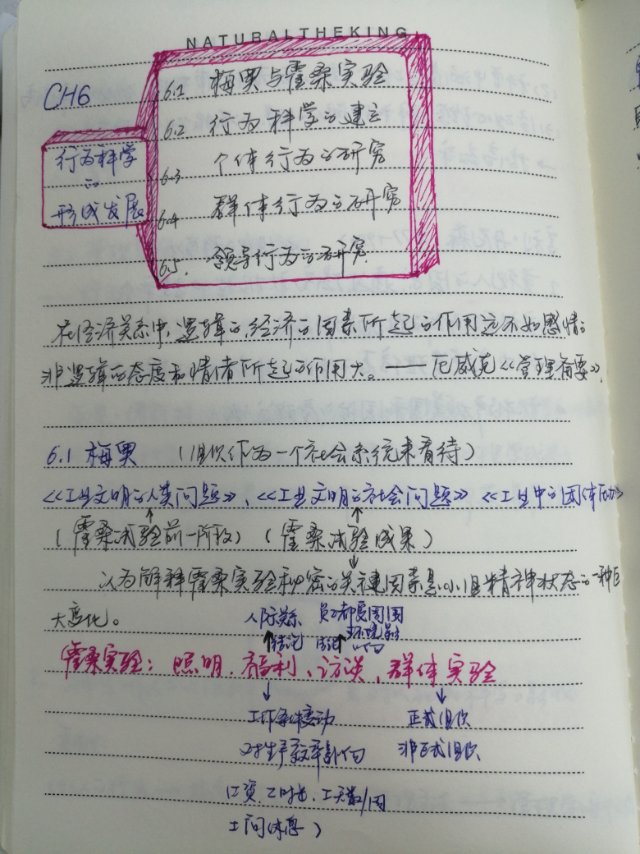 NATURALTHEKING
CH6
行为科学的形成发展
6.1 梅奥与霍桑实验
6.2 行为科学的建立
6.3 个体行为的研究
6.4 群体行为的研究
6.5. 领导行为的研究
在经济关态中,逻辑的经济的因素所起的作用远不如感情的
非逻辑的态度和情绪所起的作用大。——厄威克《管理备要》
6.1 梅奥 (组织作为一个社会系统来看待)
《工业文明的人类问题》、《工业文明的社会问题》《工业中的团体
(霍桑试验前一阶段)(霍桑试验成果)
认为解释霍桑实验秘密的关键因素是小组精神状态的一种巨
大变化。
人际关系 员工都是周围环境影响
结论 结论
霍桑实验:照明、福利、访谈、群体实验
工作条件变动 正式组织
对生产效率影响 非正式组织
(工资、工时
工间休息)